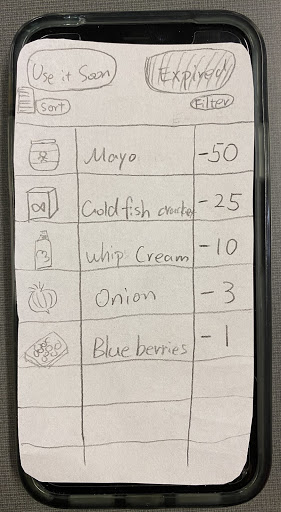 Use it Soon Expired
Sort Filter
Mayo -50
Goldfish crackers -25
Whip Cream -10
Onion -3
Blueberries -1